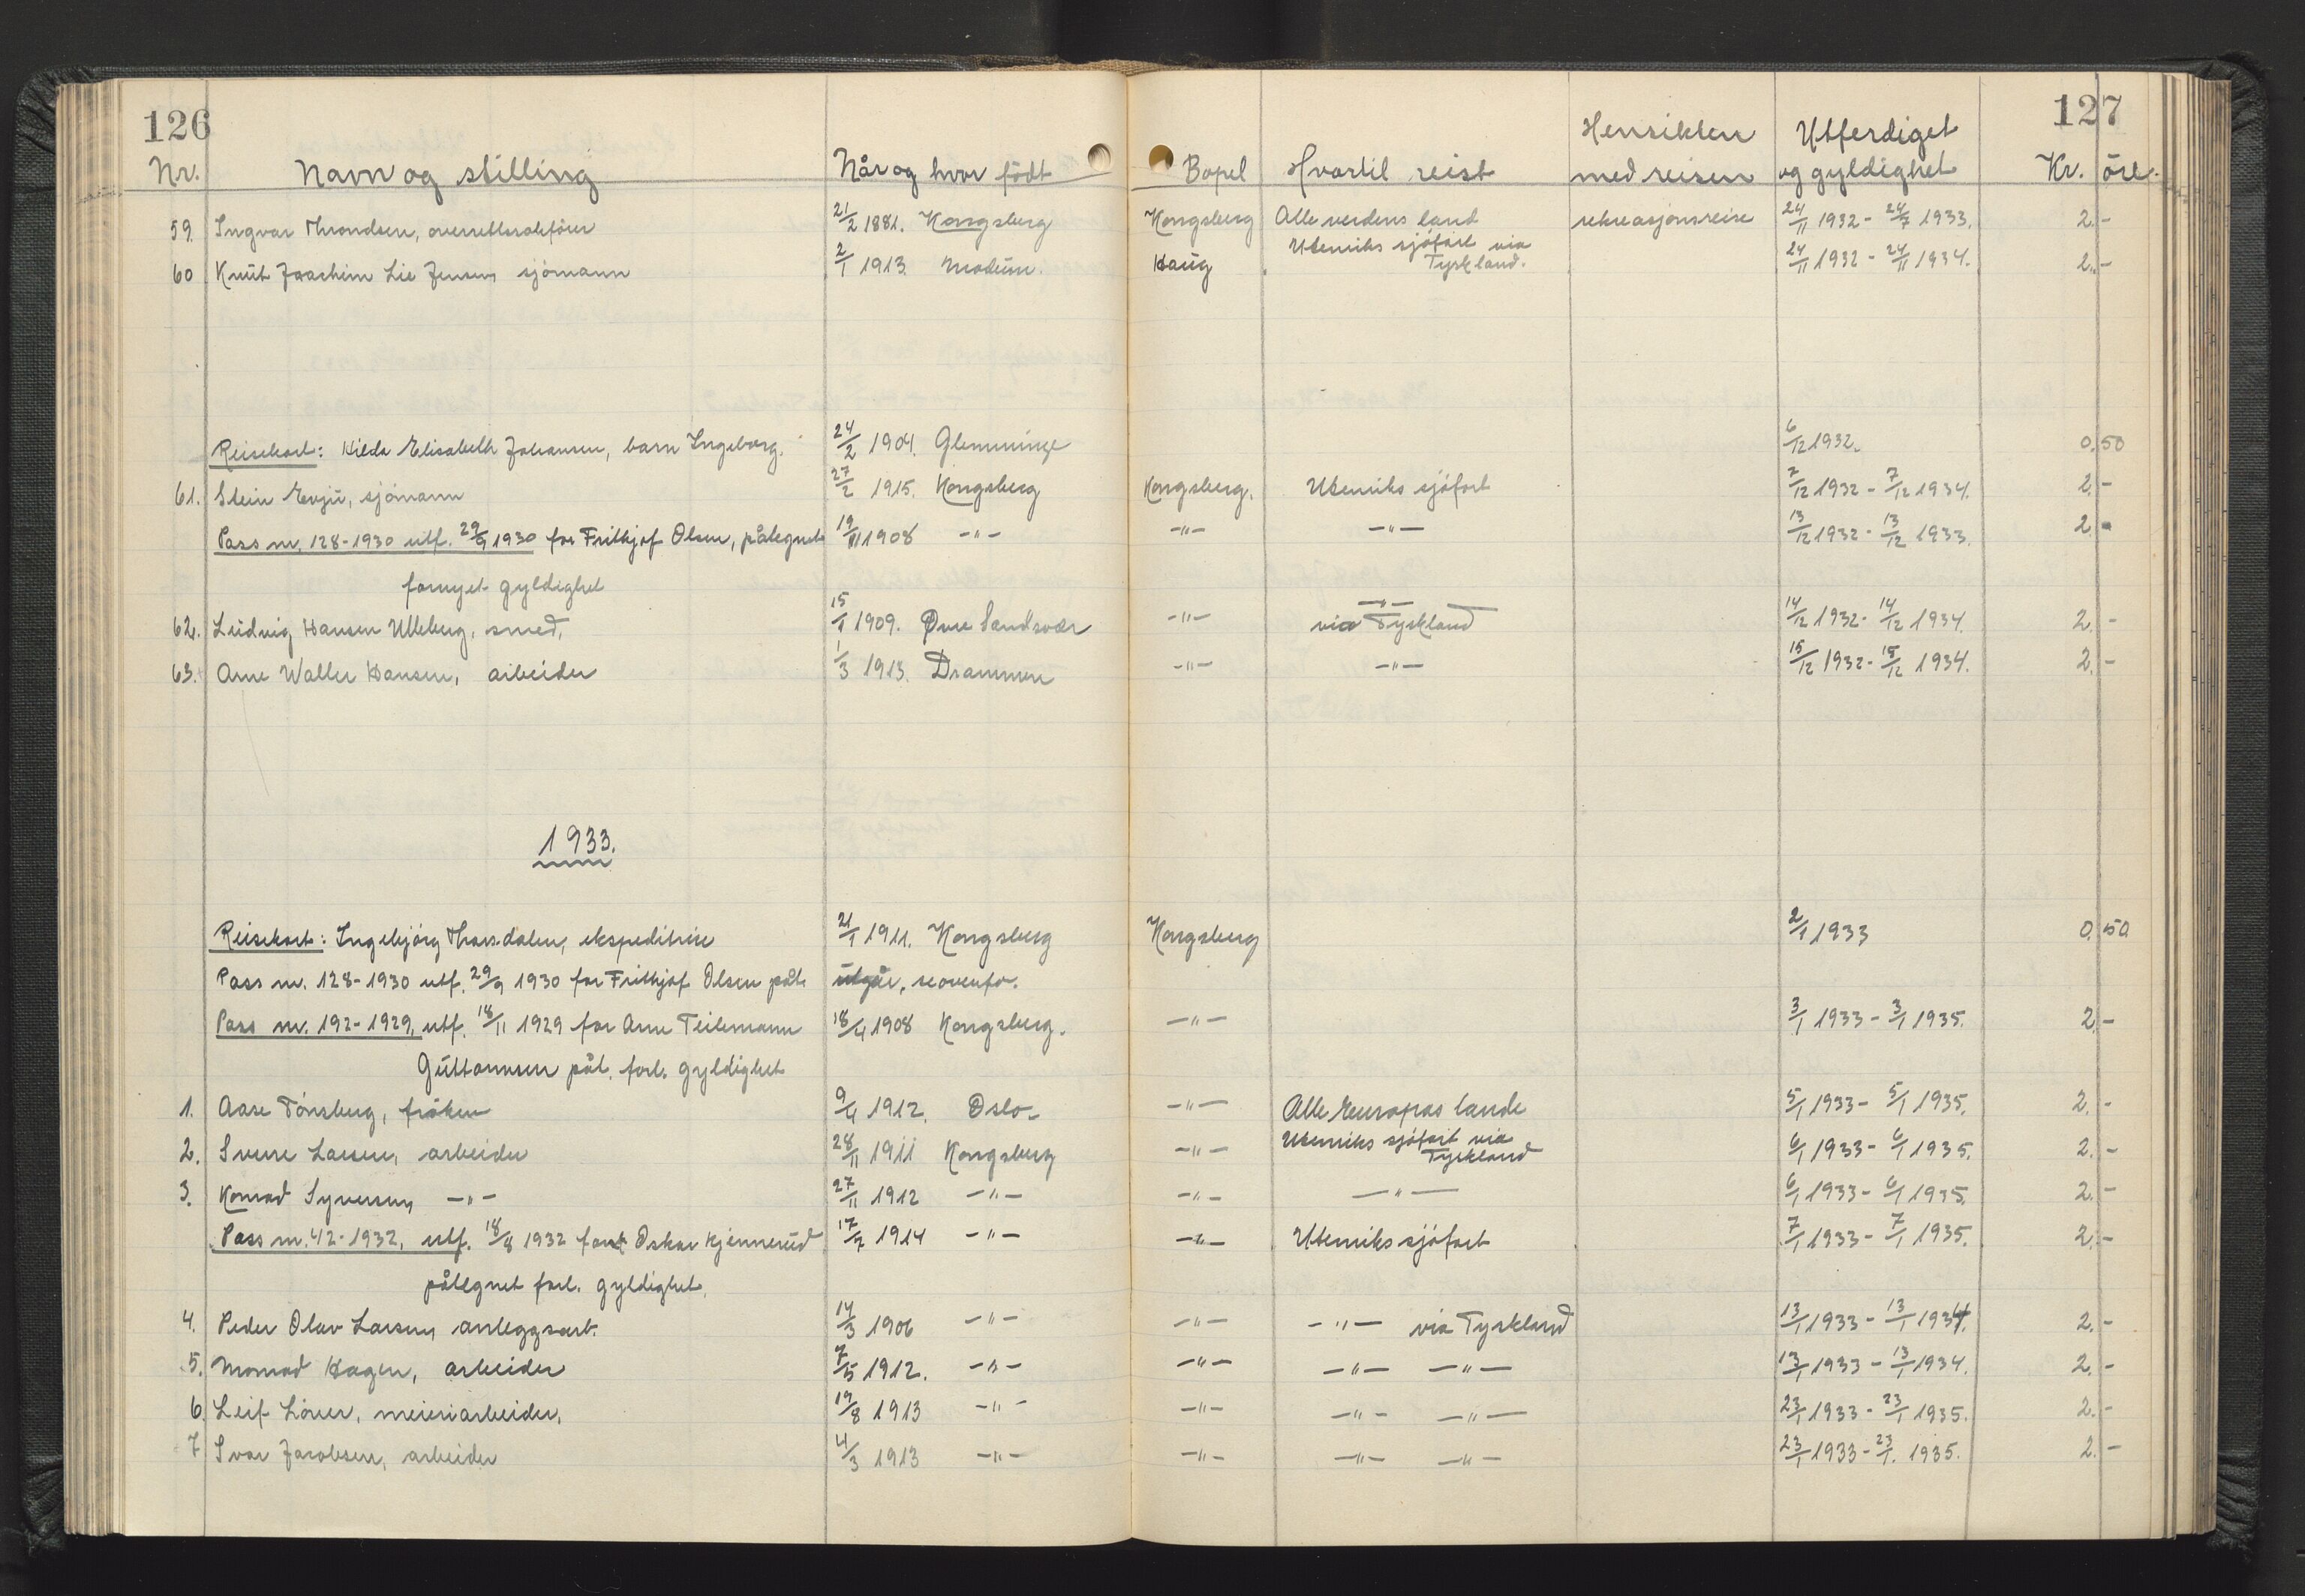 126
127
Nr. Navn og stilling Når og hvor födt Bopel Hvortil reist Hensikten med reisen Utferdiget og gyldighet Kr. öre.
59. Ingvar Throndsen, overrettssakförer 21/2 1881. Kongsberg Kongsberg Alle verdens land rekreasjonsreise 24/11 1932 - 24/7 1933. 2.-
60 Knut Joachim Lie Jensen, sjömann 2/1 1913. Modum. Haug Utenriks sjöfart via Tyskland. 24/11 1932 - 24/11 1934. 2.-
Reisekort: Hilda Elisabeth Johansen, barn Ingeborg. 24/2 1904. Glemminge 6/12 1932. 0.50
61. Stein Evju, sjömann 27/2 1915. Kongsberg Kongsberg. Utenriks sjöfart 7/12 1932 - 7/12 1934. 2.-
Pass nr. 128-1930 utf. 29/9 1930 for Frithjof Olsen, påtegnet 19/11 1908 -"- -"- -"- 13/12 1932 - 13/12 1933. 2.-
fornyet gyldighet
62. Ludvig Hansen Ulleberg, smed, 15/1 1909. Øvre Sandsvær -"- -"- via Tyskland 14/12 1932 - 14/12 1934. 2.-
63. Arne Walter Hansen, arbeider 1/3 1913. Drammen -"- -"- 15/12 1932 - 15/12 1934. 2.-
1933.
Reisekort: Ingebjörg Thorsdalen, ekspeditrise 21/1 1911. Kongsberg Kongsberg 2/1 1933 0.50
Pass nr. 128-1930 utf. 29/9 1930 for Frithjof Olsen påt. utgår, se ovenfo.
Pass nr. 192-1929, utf. 18/11 1929 for Arne Teilemann 18/4 1908 Kongsberg. -"- 3/1 1933 - 3/1 1935. 2.-
Guttormsen påt. forl. gyldighet
1. Aase Tönsberg, fröken 9/4 1912. Oslo. -"- Alle Europas lande 5/1 1933 - 5/1 1935. 2.-
2. Sverre Larsen, arbeider 28/11 1911 Kongsberg -"- Utenriks sjöfart via Tyskland 6/1 1933 - 6/1 1935. 2.-
3. Konrad Syversen, -"- 27/11 1912 -"- -"- -"- 6/1 1933 - 6/1 1935. 2.-
Pass nr. 42-1932, utf. 18/8 1932 for Oskar Kjennerud 17/2 1914 -"- -"- Utenriks sjöfart 7/1 1933 - 7/1 1935. 2.-
påtegnet forl. gyldighet.
4. Peder Olav Larsen, anleggsarb. 14/3 1906 -"- -"- -"- via Tyskland 13/1 1933 - 13/1 1934. 2.-
5. Normod Hagen, arbeider 7/5 1912. -"- -"- -"- -"- 13/1 1933 - 13/1 1934. 2.-
6. Leif Löver, meieriarbeider, 19/8 1913 -"- -"- -"- -"- 23/1 1933 - 23/1 1935. 2.-
7 Ivar Jacobsen, arbeider 4/3 1913 -"- -"- -"- -"- 23/1 1933 - 23/1. 1935. 2.-